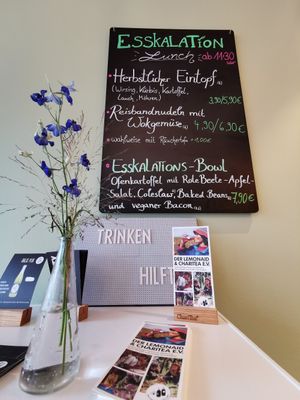 ESSKALATION
Lunch ab 11:30
Herbstlicher Eintopf
(Wirsing, Kürbis, Kartoffel,
Lauch, Möhren)
3,90/5,90€
Reisbandnudeln mit
Wokgemüse 4,90/6,90€
Wahlweise mit Räuchertofu +1,00€
ESSKALATIONS-BOWL
Ofenkartoffel mit Rote Beete-Apfel-
Salat, Coleslaw, Baked Beans
und veganer Bacon 7,90€
TRINKEN
HILFT
DER LEMONAID
& CHARITEA E.V.
DER LEMONAID
& CHARITEA E.V.